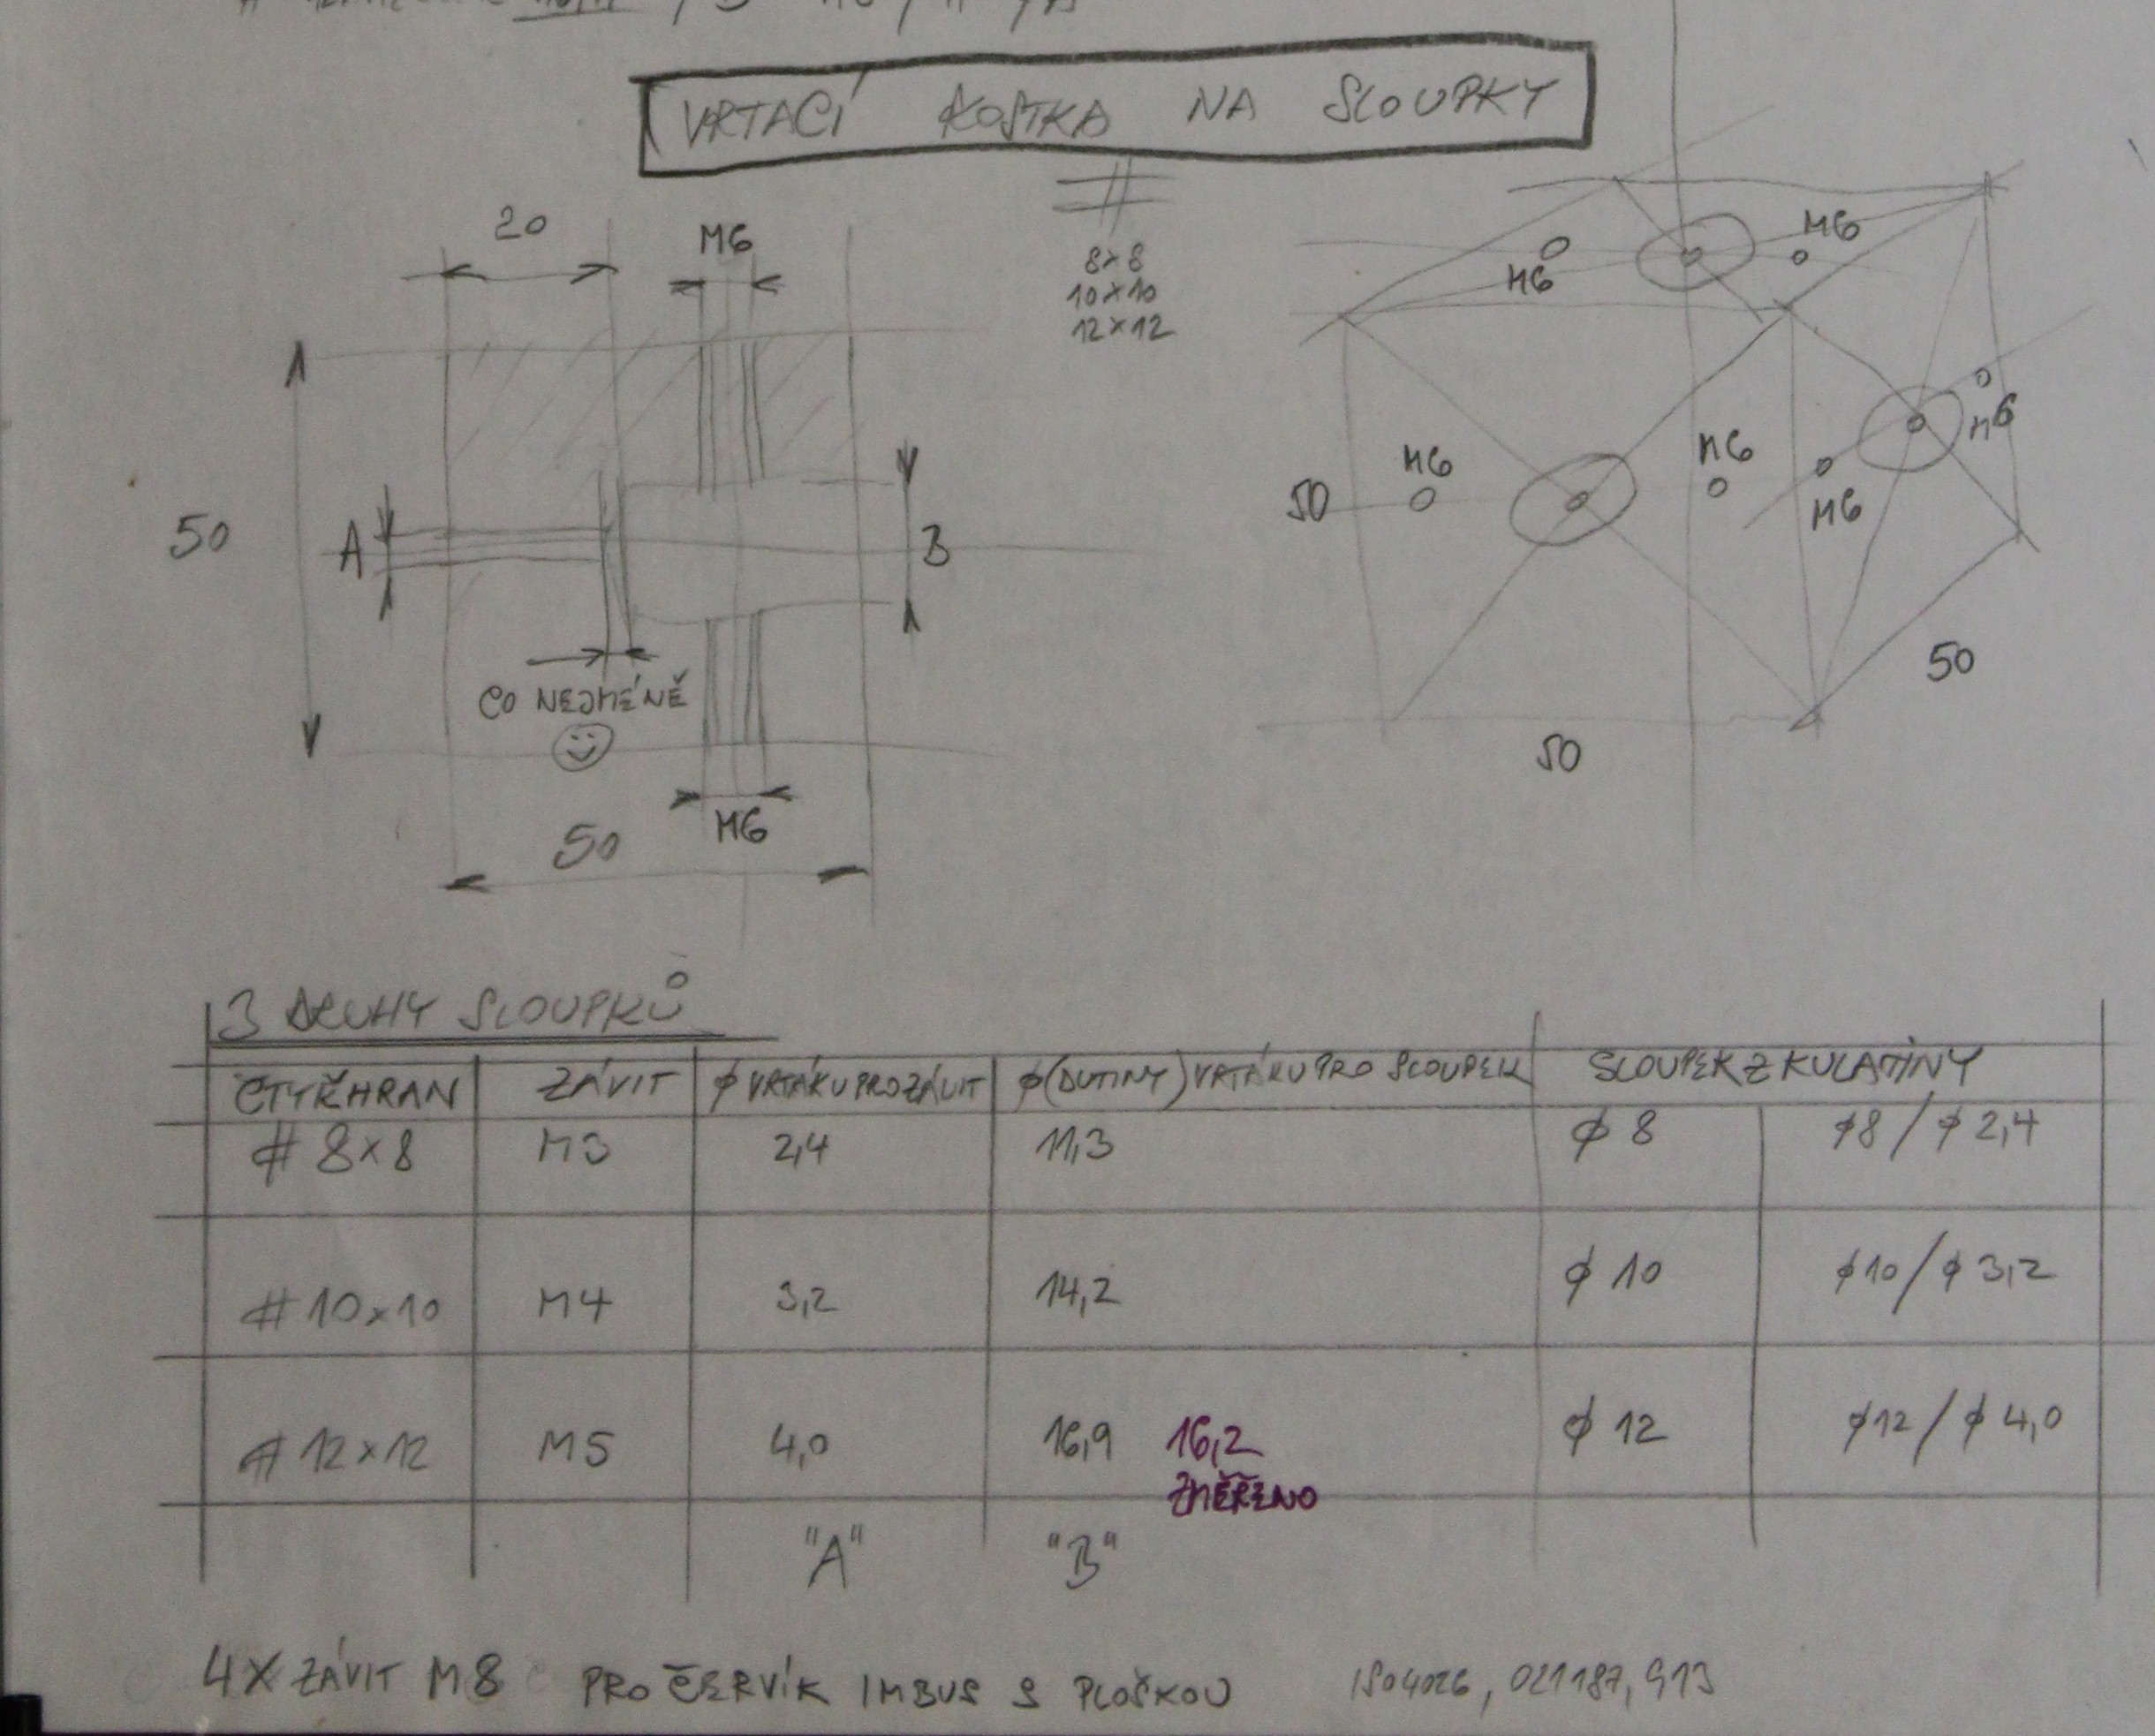 VRTACÍ KOSTKA NA SLOUPKY
#
8×8
10×10
12×12
20
M6
50
A
B
CO NEJMÉNĚ
M6
50
M6
M6
M6
M6
M6
M6
50
50
50
3 DRUHY SLOUPKŮ
ČTYŘHRAN ZÁVIT ϕ VRTÁKU PRO ZÁVIT ϕ (DUTINY) VRTÁKU PRO SLOUPEK SLOUPEK Z KULATINY
# 8×8 M3 2,4 11,3 ϕ 8 ϕ8 / ϕ 2,4
# 10×10 M4 3,2 14,2 ϕ 10 ϕ10 / ϕ 3,2
# 12×12 M5 4,0 16,9 16,2 ϕ 12 ϕ12 / ϕ 4,0
ZMĚŘENO
"A" "B"
4X ZÁVIT M8 PRO ČERVÍK IMBUS S PLOŠKOU ISO4026, 021187, 913